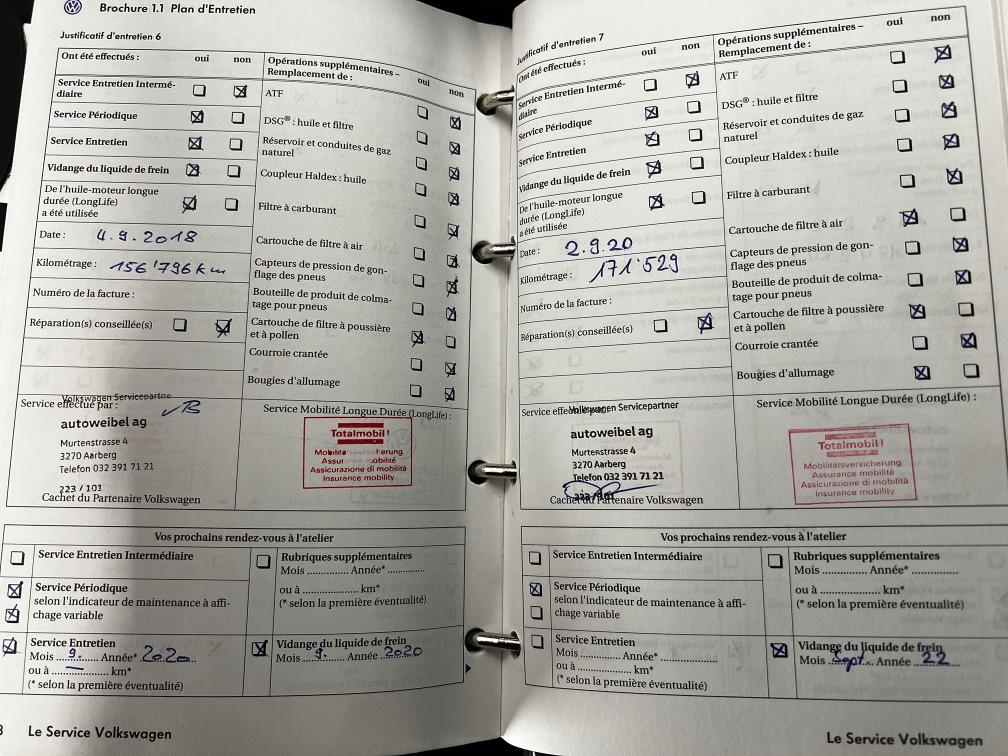 Brochure 1.1 Plan d'Entretien
Justificatif d'entretien 6
Ont été effectués : oui non
Service Entretien Intermé-
diaire
Service Périodique
Service Entretien
Vidange du liquide de frein
De l'huile-moteur longue
durée (LongLife)
a été utilisée
Date : 4.9.2018
Kilométrage : 156'796 km
Numéro de la facture :
Réparation(s) conseillée(s)
Opérations supplémentaires –
Remplacement de : oui non
ATF
DSG® : huile et filtre
Réservoir et conduites de gaz
naturel
Coupleur Haldex : huile
Filtre à carburant
Cartouche de filtre à air
Capteurs de pression de gon-
flage des pneus
Bouteille de produit de colma-
tage pour pneus
Cartouche de filtre à poussière
et à pollen
Courroie crantée
Bougies d'allumage
Service effectué par :
Volkswagen Servicepartne
autoweibel ag
Murtenstrasse 4
3270 Aarberg
Telefon 032 391 71 21
223 / 101
Cachet du Partenaire Volkswagen
Service Mobilité Longue Durée (LongLife) :
Totalmobil!
Mobilitätsversicherung
Assurance mobilité
Assicurazione di mobilità
Insurance mobility
Vos prochains rendez-vous à l'atelier
Service Entretien Intermédiaire
Service Périodique
selon l'indicateur de maintenance à affi-
chage variable
Service Entretien
Mois 9. Année* 2020
ou à .................. km*
(* selon la première éventualité)
Rubriques supplémentaires
Mois .............. Année* .............
ou à .................. km*
(* selon la première éventualité)
Vidange du liquide de frein
Mois 9. Année 2020
Le Service Volkswagen
Justificatif d'entretien 7
Ont été effectués : oui non
Service Entretien Intermé-
diaire
Service Périodique
Service Entretien
Vidange du liquide de frein
De l'huile-moteur longue
durée (LongLife)
a été utilisée
Date : 2.9.20
Kilométrage : 171'529
Numéro de la facture :
Réparation(s) conseillée(s)
Opérations supplémentaires –
Remplacement de : oui non
ATF
DSG® : huile et filtre
Réservoir et conduites de gaz
naturel
Coupleur Haldex : huile
Filtre à carburant
Cartouche de filtre à air
Capteurs de pression de gon-
flage des pneus
Bouteille de produit de colma-
tage pour pneus
Cartouche de filtre à poussière
et à pollen
Courroie crantée
Bougies d'allumage
Service effectué par :
Volkswagen Servicepartner
autoweibel ag
Murtenstrasse 4
3270 Aarberg
Telefon 032 391 71 21
223 / 101
Cachet du Partenaire Volkswagen
Service Mobilité Longue Durée (LongLife) :
Totalmobil!
Mobilitätsversicherung
Assurance mobilité
Assicurazione di mobilità
Insurance mobility
Vos prochains rendez-vous à l'atelier
Service Entretien Intermédiaire
Service Périodique
selon l'indicateur de maintenance à affi-
chage variable
Service Entretien
Mois .............. Année* ..................
ou à .................. km*
(* selon la première éventualité)
Rubriques supplémentaires
Mois .............. Année* ..............
ou à .................. km*
(* selon la première éventualité)
Vidange du liquide de frein
Mois Sept. Année 22
Le Service Volkswagen